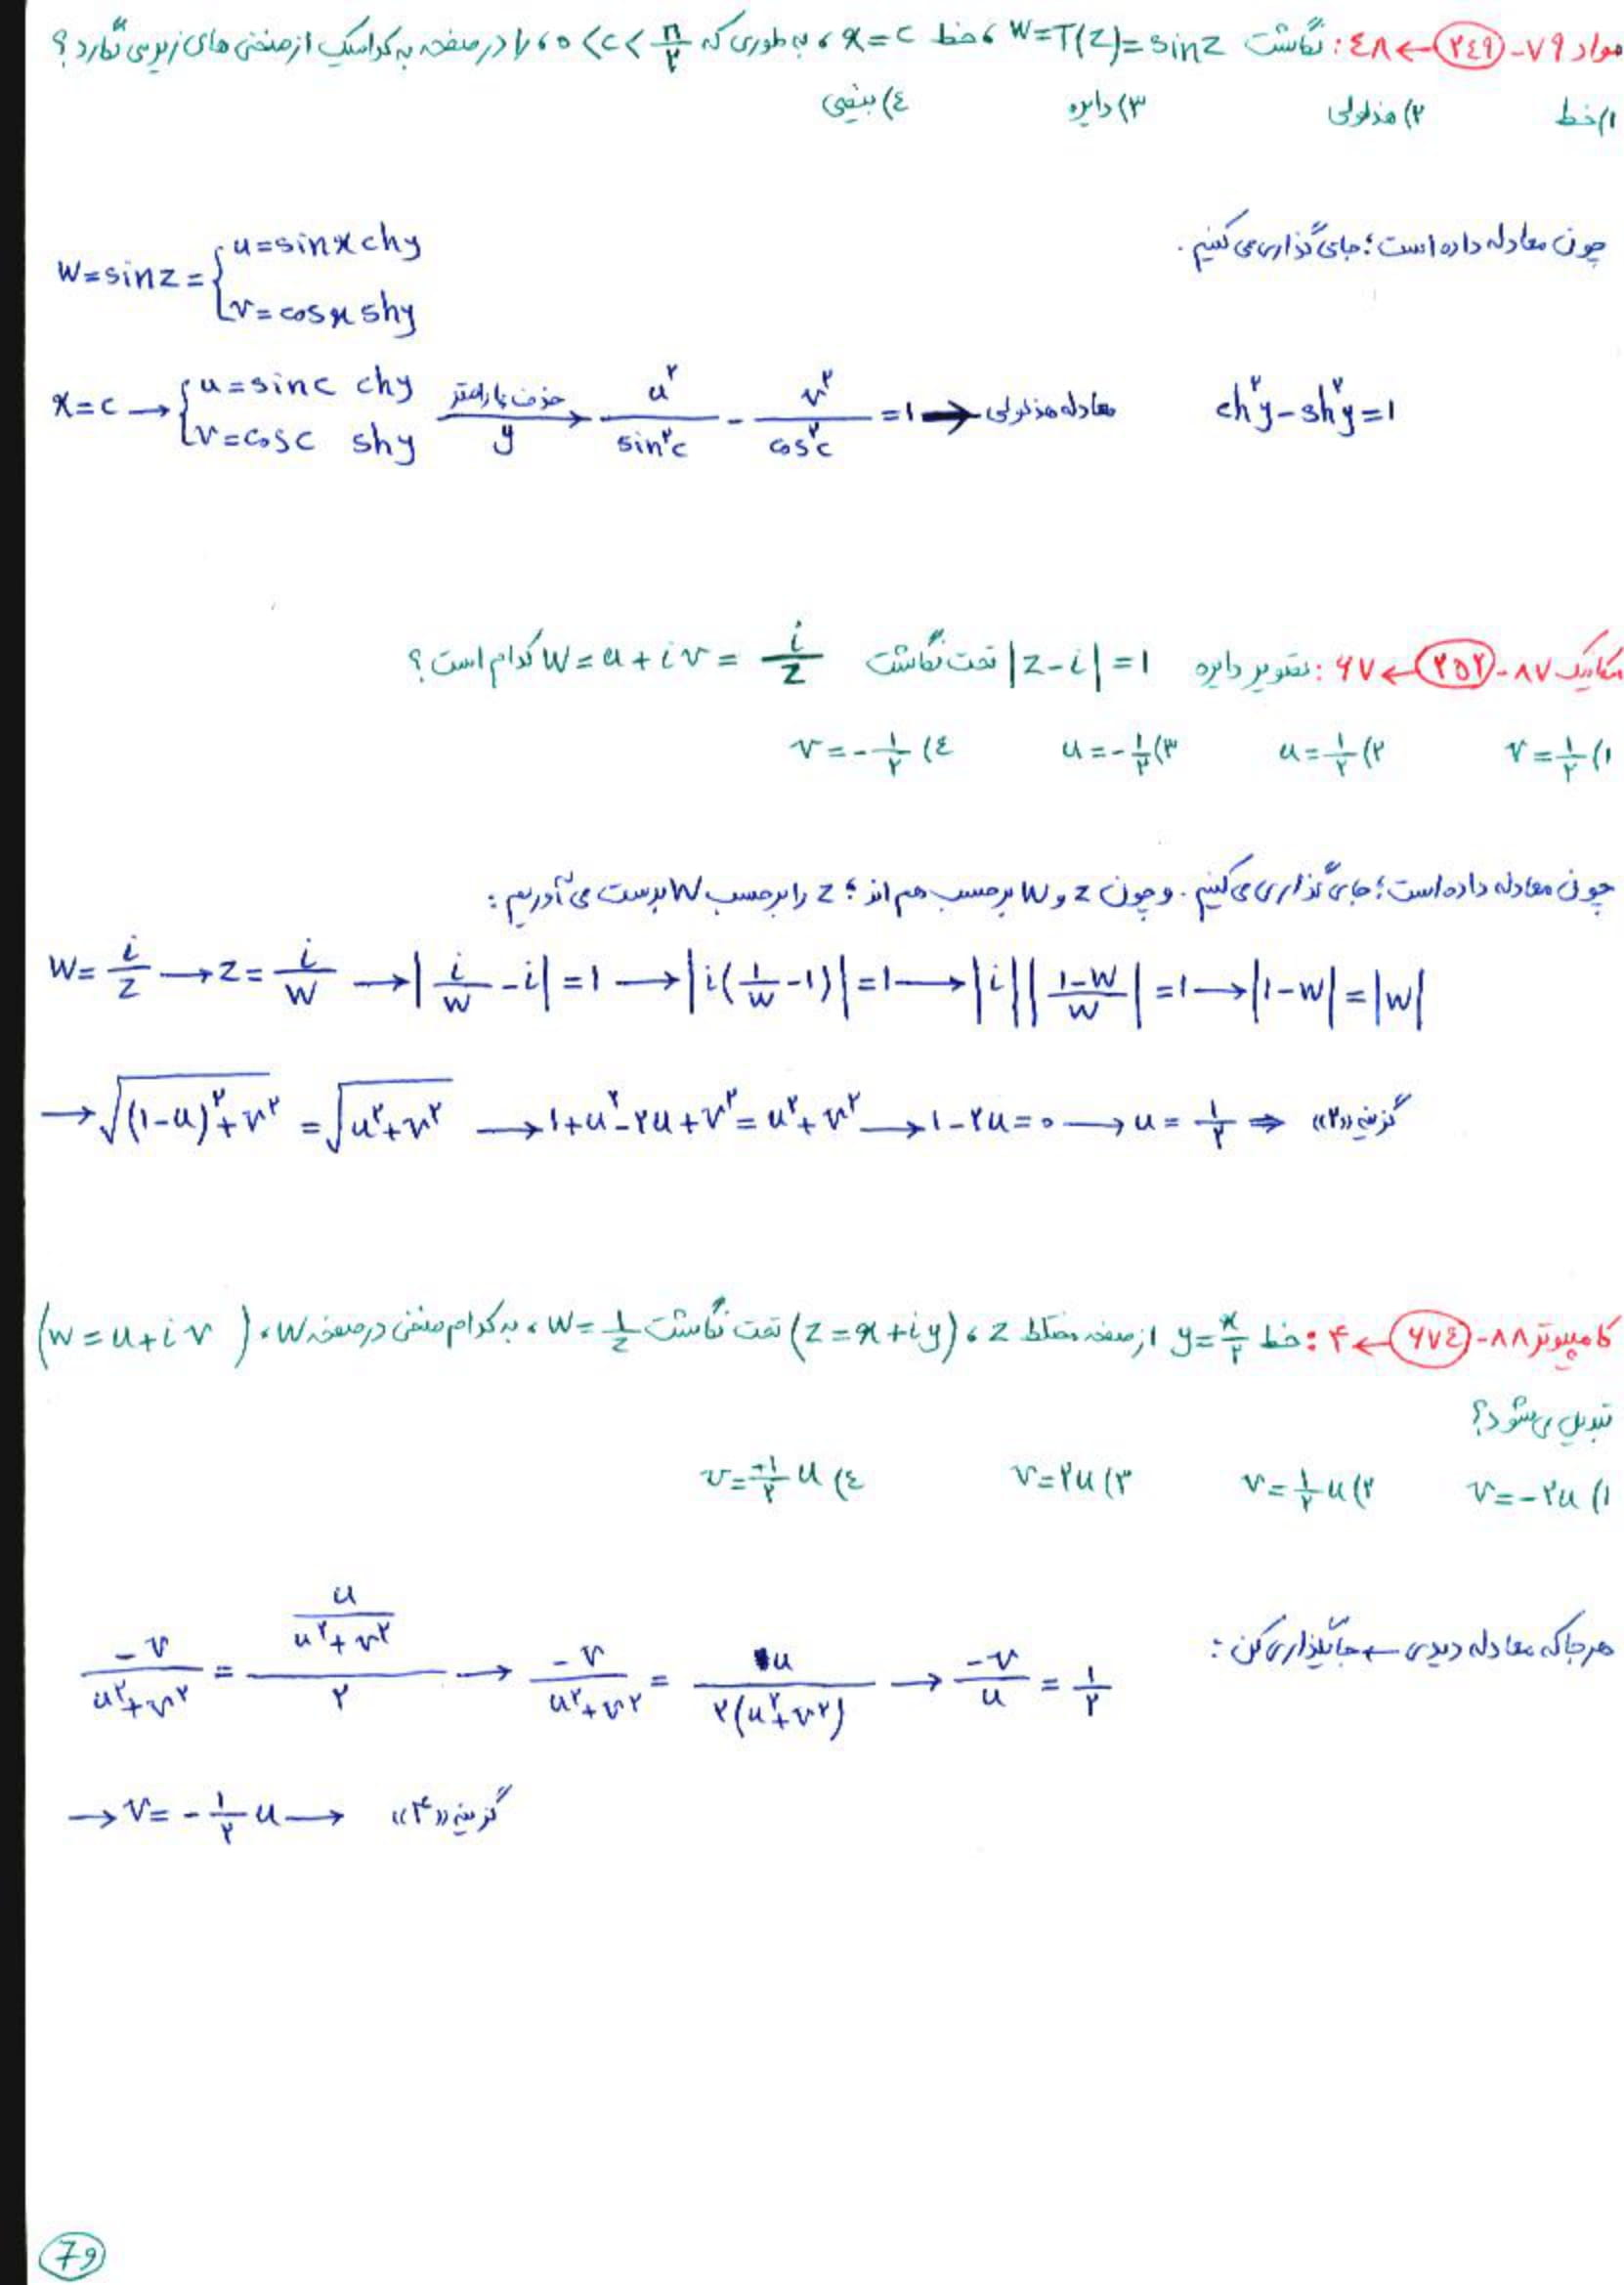 مواد ۷۹-۲٤۹ ← ٤۸: نگاشت w=T(z)=sinz، خط x=c، به طوری که 0<c<π/۲، را در صفحه به کدامیک از منحنی های زیر می نگارد؟
۱) خط ۲) هذلولی ۳) دایره ٤) بیضی
چون معادله داده است؛ جای گذاری می کنیم.
w=sinz={u=sinx chy
v=cosx shy
x=c → {u=sinc chy
v=cosc shy حذف پارامتر y → u^۲/sin^۲c - v^۲/cos^۲c = ۱ → معادله هذلولی ch^۲y-sh^۲y=1
مکانیک ۸۷-۲۵۲ ← ۶۷: تصویر دایره |z-i|=1 تحت نگاشت w=u+iv=i/z کدام است؟
۱) v=۱/۲ ۲) u=۱/۲ ۳) u=-۱/۲ ٤) v=-۱/۲
چون معادله داده است؛ جای گذاری می کنیم. و چون z و w برحسب هم اند؛ z را برحسب w بدست می آوریم:
w=i/z → z=i/w → |i/w - i|=1 → |i(1/w -1)|=1 → |i||(1-w)/w|=1 → |1-w|=|w|
→ √((1-u)^۲+v^۲) = √(u^۲+v^۲) → 1+u^۲-۲u+v^۲=u^۲+v^۲ → 1-۲u=0 → u=۱/۲ ⇒ گزینه «۲»
کامپیوتر ۸۸-۶۷٤ ← ۴: خط y=x/۲ از صفحه مختلط z، (z=x+iy) تحت نگاشت w=1/z، به کدام منحنی در صفحه w، (w=u+iv)
تبدیل می شود؟
۱) v=-۲u ۲) v=۱/۲ u ۳) v=۲u ٤) v=-۱/۲ u
هرجا که معادله دیدی ← جایگذاری کن:
-v/(u^۲+v^۲) = (u/(u^۲+v^۲))/۲ → -v/(u^۲+v^۲) = u/(۲(u^۲+v^۲)) → -v/u = ۱/۲
→ v=-۱/۲ u → گزینه «۴»
79